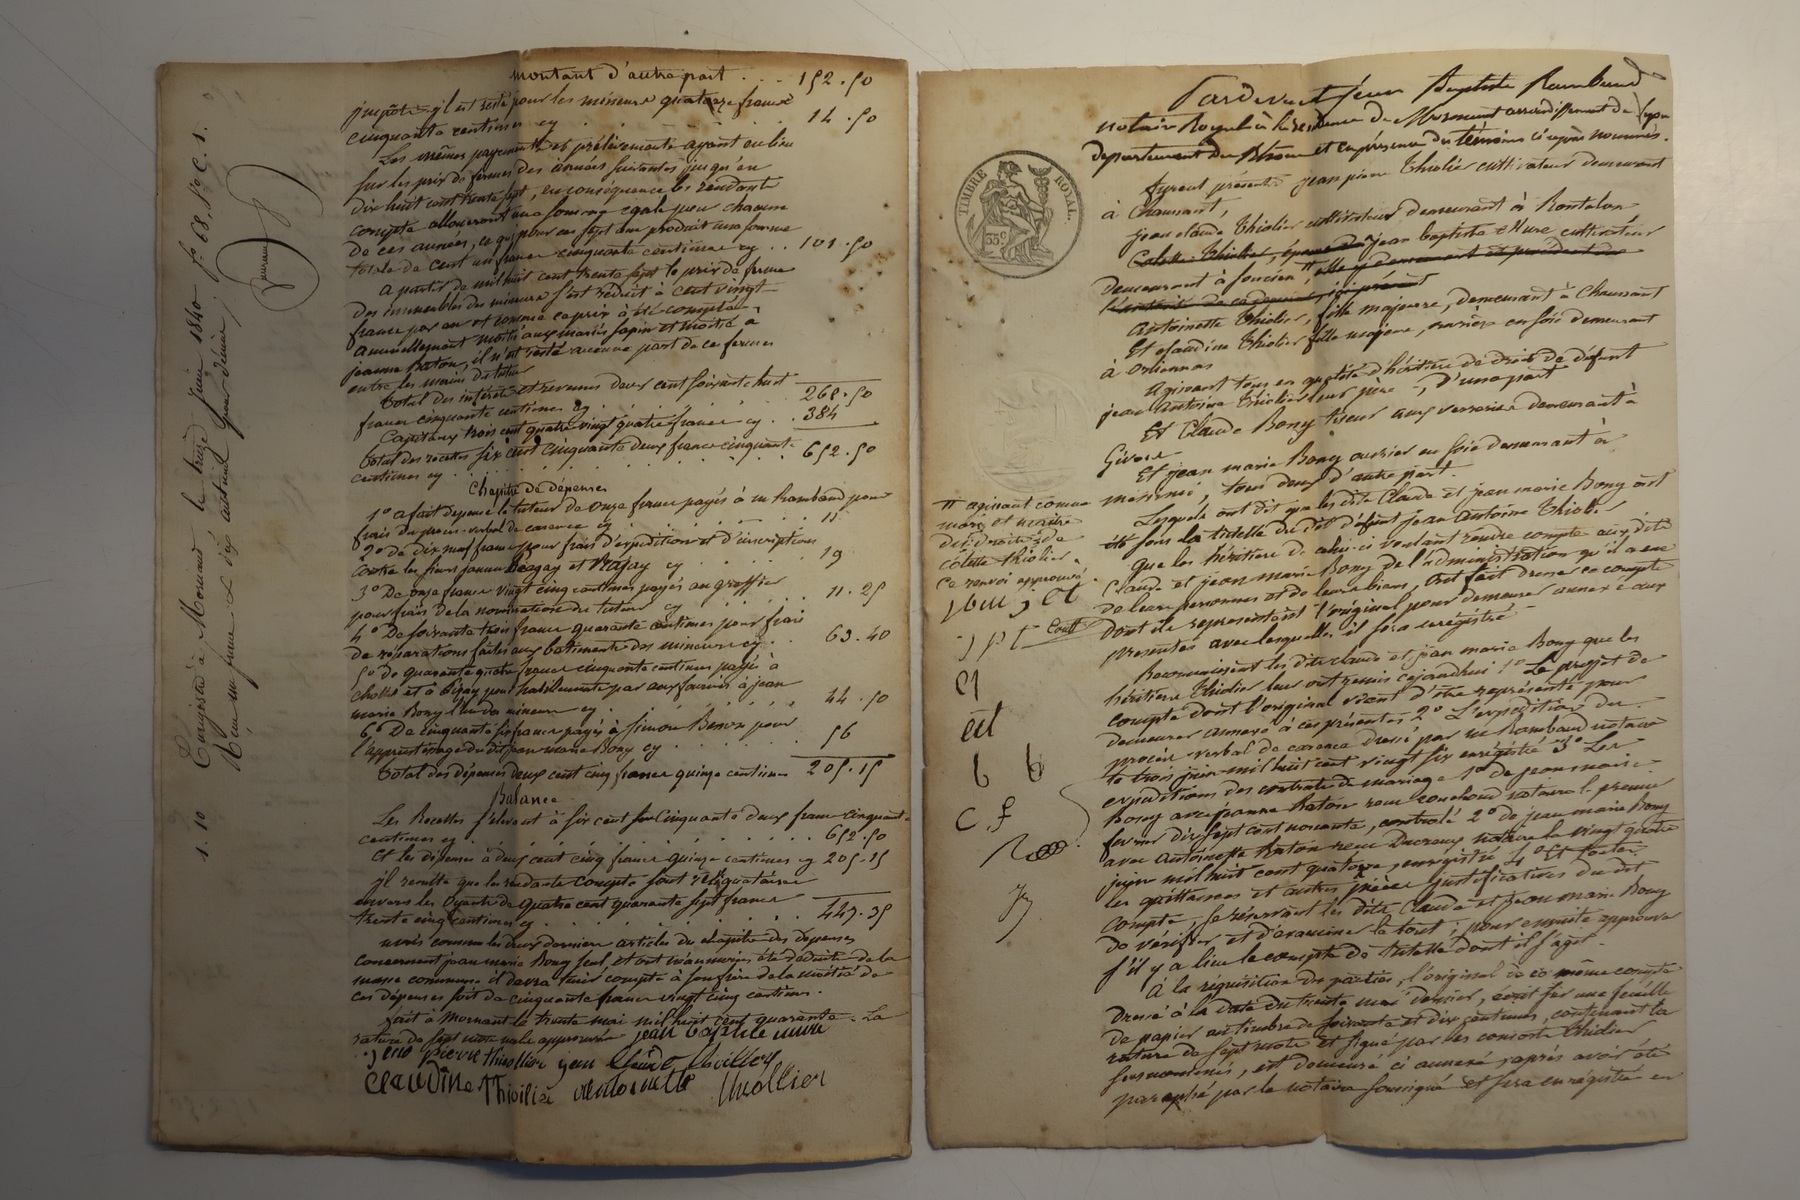 montant d'autre part . . . 152.50
jmpôts, il est resté pour les mineurs quatorze francs
cinquante centimes cy . . . 14.50
Les mêmes payements et prélèvements ayant eu lieu
sur les prix de fermes des années suivantes jusqu'en
dix huit cent trente sept, en conséquence les rendants
compte alloueront une somme egale pour chacune
de ces années, ce qui pour ces sept ans produit une somme
totale de cent un francs cinquante centimes cy . . 101.50
a partir de mil huit cent trente sept le prix de ferme
des immeubles des mineurs s'est réduit à cent vingt
francs par an et comme ce prix à été compté
annuellement moitié aux mariés sapin et moitié à
jeanne Raton, il n'est resté aucune part de ce fermes
entre les mains du tuteur
total des intérêts et revenus deux cent soixante huit
francs cinquante centimes cy . . . 268.50
Capitaux trois cent quatre vingt quatre francs cy . 384
total des recettes six cent cinquante deux francs cinquante
centimes cy . . . 652.50
Chapitre de dépenses
1° a fait depense le tuteur de onze francs payés à me Rambaud pour
frais du procès-verbal de carence cy . . . 11
2° De dix neuf francs pour frais d'expédition et d'inscriptions
contre les sieurs et cy . . . 19
3° De onze francs vingt cinq centimes payés au greffier
pour frais de la nomination du tuteur cy . . . 11.25
4° De soixante trois francs quarante centimes pour frais
de réparations faites aux batiments des mineurs cy . . 63.40
5° de quarante quatre francs cinquante centimes payés à
et à pour habillements par eux fournis à jean
marie Bony l'un des mineurs cy . . . 44.50
6° De cinquante six francs payés à Simon pour
l'apprentissage du dit jean marie Bony cy . . . 56
total des dépenses deux cent cinq francs quinze centimes 205.15
Balance
Les Recettes s'elevent à six cent cinquante deux francs cinquante
centimes cy . . . 652.50
Et les dépenses à deux cent cinq francs quinze centimes cy 205.15
jl resulte que les rendants compte sont réliquataires
envers les oyants de quatre cent quarante sept francs
trente cinq centimes cy . . . 447.35
mais comme les deux derniers articles du chapitre des dépenses
concernent jean marie Bony seul et ont néanmoins été déduits de la
masse commune il devra tenir compte à son frère de la moitié de
ces dépenses soit de cinquante francs vingt cinq centimes.
fait à Mornant le trente mai mil huit cent quarante. La
rature de sept mots nuls approuvée jean baptiste mure
jean pierre thiollier jean Claude thiollier
claudine Thiolliei antoinette thiollier
Enregistré à Mornant, le treize juin 1840 fo 68, Ro C. 1.
Reçu un franc & dix centimes pour décime.
1. 10
Pardevant Jean Baptiste Rambaud
notaire Royal à la résidence de Mornant arrondissement de Lyon
departement du Rhone et en présence des témoins ci après nommés.
TIMBRE ROYAL.
35c
Furent présents jean pierre Thiolier cultivateur demeurant
à Chaussant,
jean claude Thiolier cultivateur demeurant à Rontalon
Colette Thiolier, épouse de jean baptiste Mure cultivateur
demeurant à soucieu,
antoinette Thiolier, fille majeure, demeurant à Chaussant
Et claudine Thiolier fille majeure, ouvrière en soie demeurant
à orliennas
Agissant tous en qualité d'héritiers de droit de défunt
jean Antoine Thiolier leur père, D'une part
Et Claude Bony tiseur aux verreries demeurant à
Givors
Et jean marie Bony ouvrier en soie demeurant à
messimi, tous deux d'autre part.
agissant comme
mari et maitre
des droits de
colette thiolier.
ce renvoi approuvé.
Lesquels ont dit que les dits Claude et jean marie Bony ont
été sous la tutelle du dit défunt jean Antoine Thiolier
que les héritiers de celui-ci voulant rendre compte aux dits
Claude et jean marie Bony de l'administration qu'il a eue
de leurs personnes et de leurs biens, ont fait dresser ce compte
dont ils représentent l'original pour demeurer annexé aux
présentes avec lesquelles il sera enregistré
Reconnaissent les dits claude et jean marie Bony que les
héritiers Thiolier leur ont remis cejourdhui 1° Le projet de
compte dont l'original vient d'être représenté pour
demeurer annexé à ces présentes 2° L'expédition du
procès verbal de carence dressé par me Rambaud notaire
le trois juin mil huit cent vingt six enregistré 3° Les
expéditions des contrats de mariage 1° de jean marie
Bony avec jeanne Raton reçu notaire le premier
fevrier dix sept cent nonante, controlé 2° de jean marie Bony
avec Antoinette Raton reçu notaire le vingt quatre
juin mil huit cent quatorze, enregistré 4° Et toutes
les quittances et autres pièces justificatives du dit
compte, se réservant les dits Claude et jean marie Bony
de vérifier et d'examiner le tout; pour ensuite approuver
s'il y a lieu le compte de tutelle dont il s'agit.
À la réquisition des parties, l'original de ce même compte
Dressé à la date du trente mai dernier, écrit sur une feuille
de papier au timbre de soixante et dix centimes, contenant la
rature de sept mots et signé par les consorts Thiolier
susnommés, est demeuré ci annexé, après avoir été
paraphé par le notaire soussigné et sera enregistré en